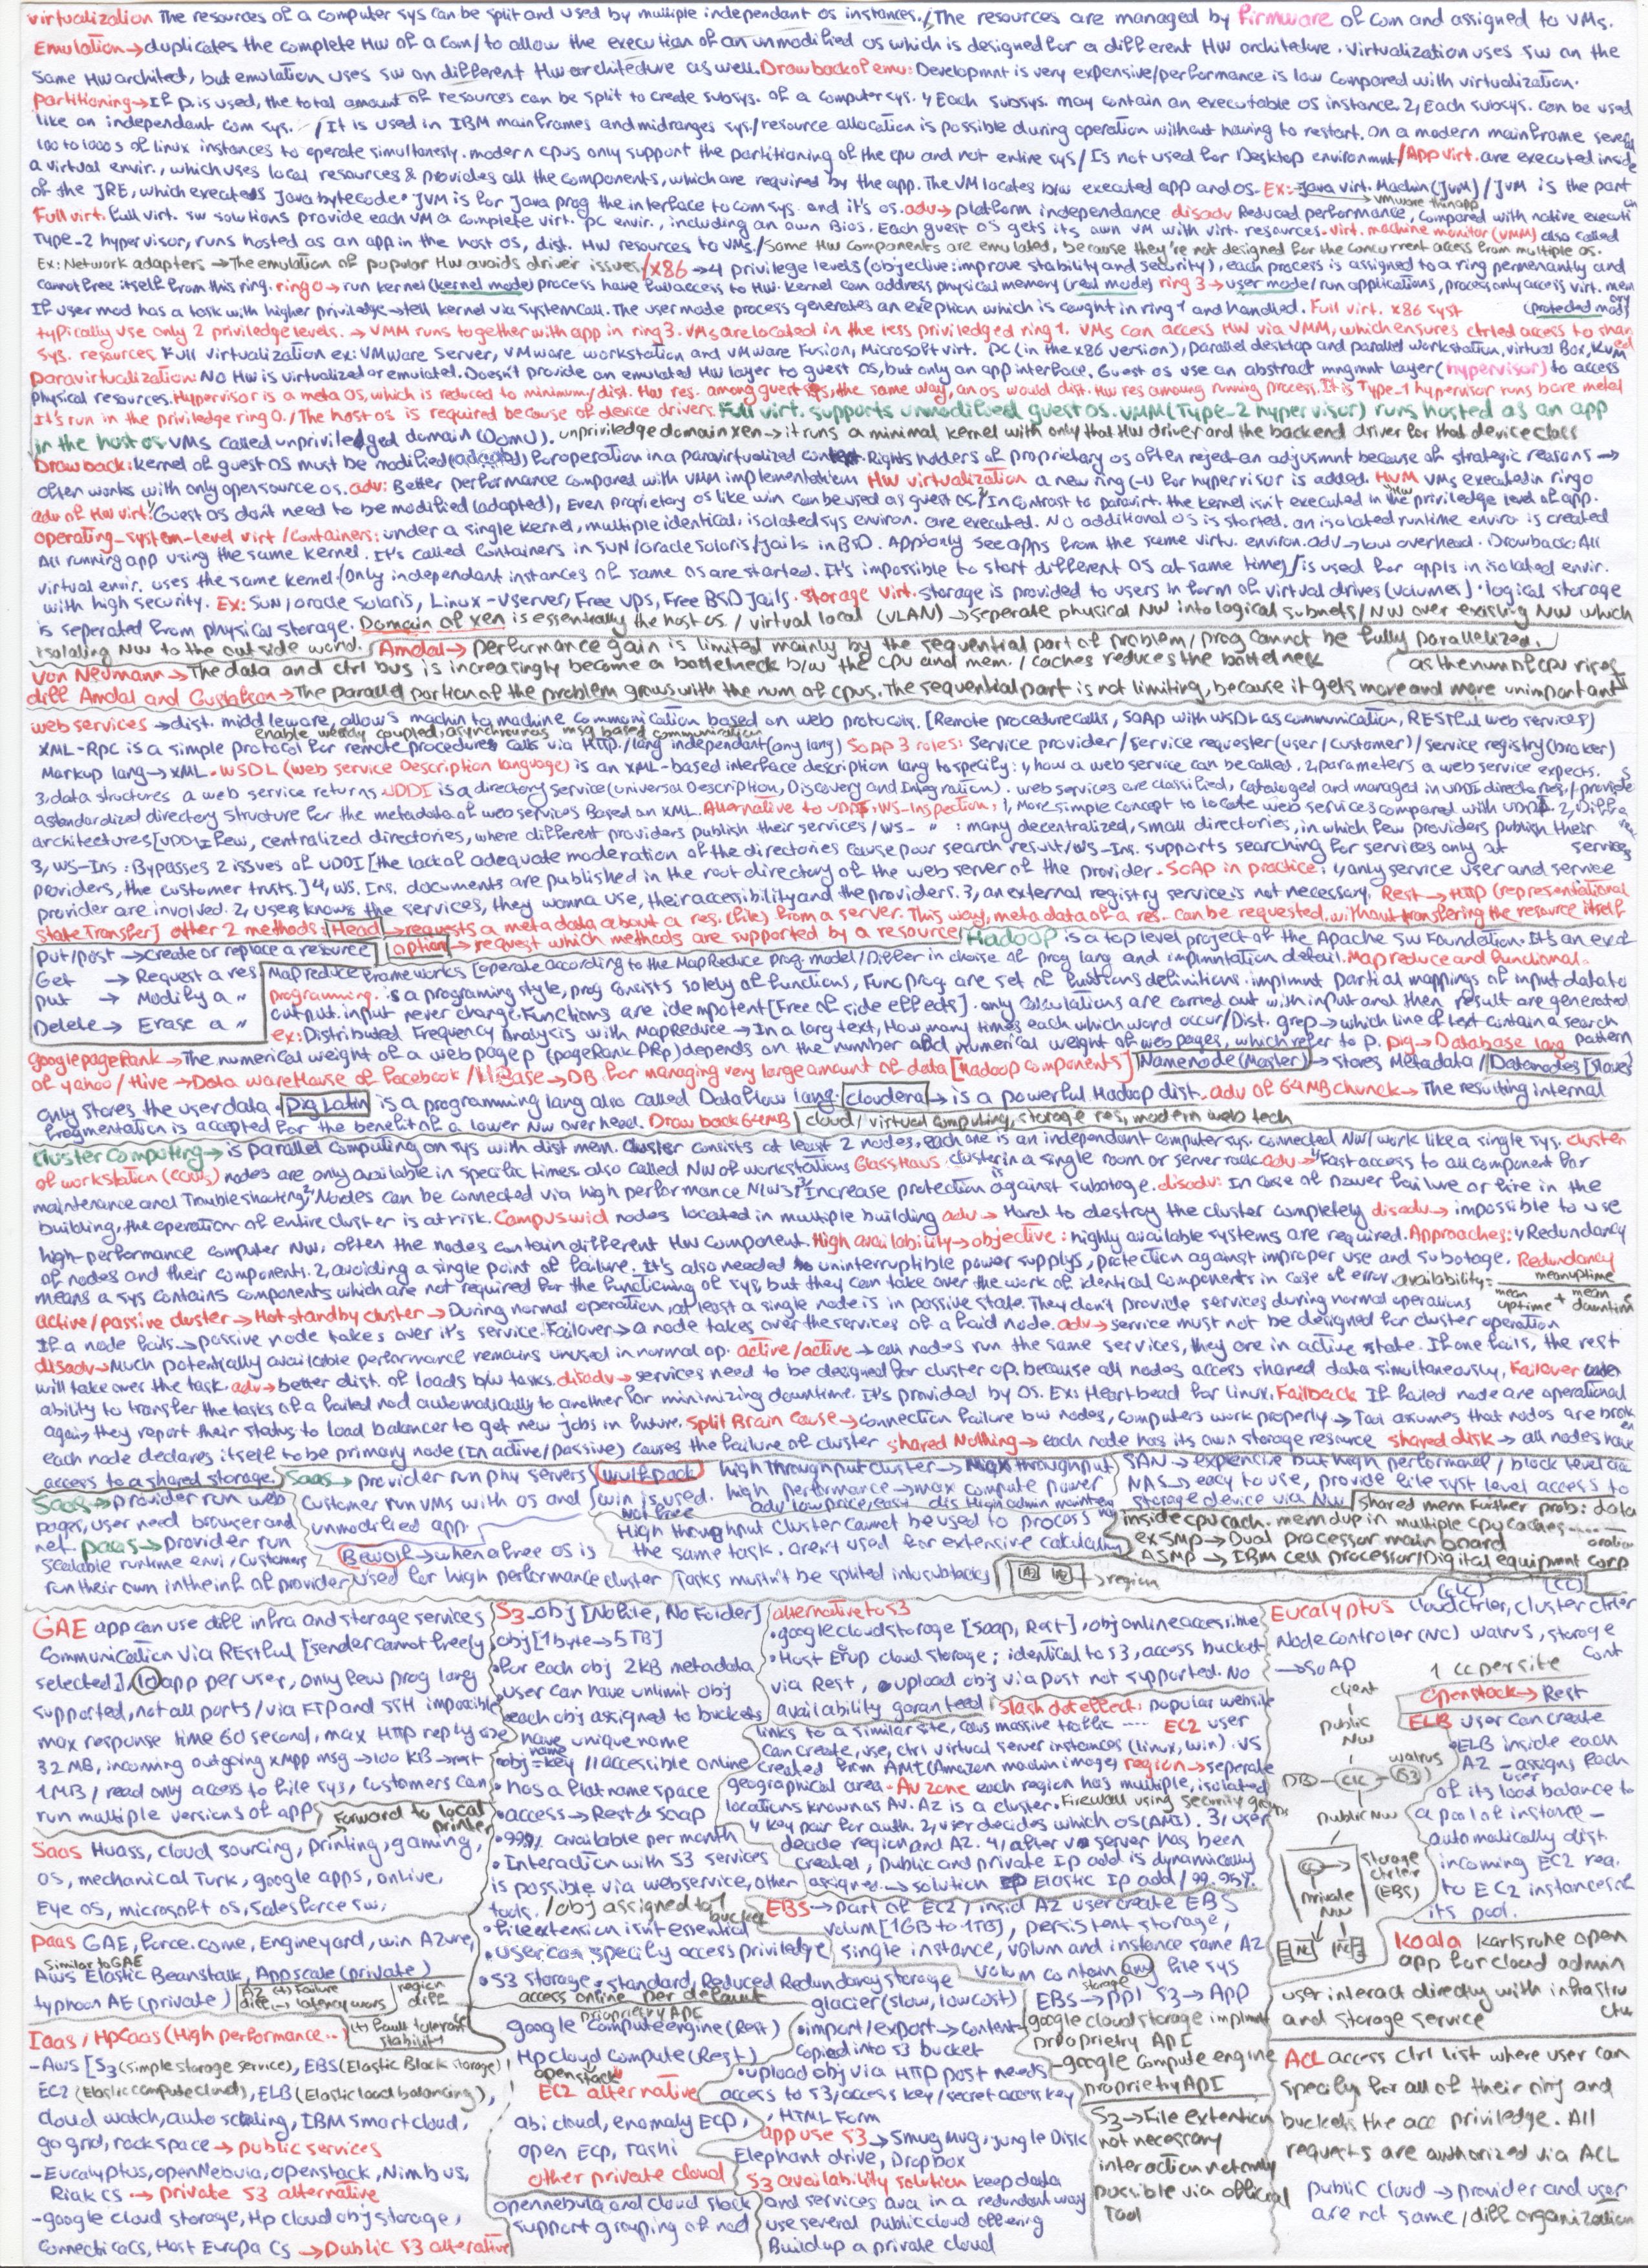 virtualization The resources of a computer sys can be split and used by multiple independant os instances./The resources are managed by Firmware of com and assigned to VMs.
Emulation→duplicates the complete HW of a Com/to allow the execution of an unmodified os which is designed for a different HW architecture. Virtualization uses sw on the
same HW architect, but emulation uses sw on different HW architecture as well. Drawback of emu: Developmnt is very expensive/performance is low compared with virtualization.
partitioning→If p. is used, the total amount of resources can be split to create subsys. of a computer sys. 1, Each subsys. may contain an executable os instance. 2, Each subsys. can be used
like an independant com sys. /It is used in IBM mainframes and midranges sys/resource allocation is possible during operation without having to restart. on a modern mainframe several
100 to 1000s of linux instances to operate simultanesly. modern cpus only support the partitioning of the cpu and not entire sys/Is not used for Desktop environmnt/App virt. are executed inside
a virtual envir., which uses local resources & provides all the components, which are required by the app. The VM locates b/w executed app and os. Ex: Java virt. Machin (JVM)/JVM is the part
of the JRE, which executeds Java bytecode. JVM is for Java prog the interface to com sys. and it's os. adv→ platform independance disadv Reduced performance, compared with native executi
vmware thinapp on
Full virt. Full virt. sw solutions provide each VM a complete virt. pc envir., including an own Bios. Each guest os gets its own VM with virt. resources. virt. machine monitor (VMM) also called
Type-2 hypervisor, runs hosted as an app in the host os, dist. HW resources to VMs./some HW components are emulated, because they're not designed for the concurrent access from multiple os.
Ex: Network adapters →The emulation of popular HW avoids driver issues/x86→4 privilege levels (objective: improve stability and security), each process is assigned to a ring permenantly and
cannot free itself from this ring. ring 0→ run kernel (kernel mode) process have full access to HW. kernel can address physical memory (real mode) ring 3→user mode/run applications, process only access virt. mem
If user mod has a task with higher priviledge→tell kernel via system call. The user mode process generates an exeption which is caught in ring 1 and handled. Full virt. x86 syst (proteded mod) ory
typically use only 2 priviledge levels. → VMM runs together with app in ring 3. VMs are located in the less priviledged ring 1. VMs can access HW via VMM, which ensures ctrled access to shar
sys. resources. Full virtualization ex: VMware Server, VMware workstation and VMware Fusion, Microsoft virt. pc (in the x86 version), parallel desktop and parallel workstation, virtual Box, Kvm ed
paravirtualization: NO HW is virtualized or emulated. Doesn't provide an emulated HW layer to guest os, but only an app interface. Guest os use an abstract mngmnt layer (hypervisor) to access
physical resources. Hypervisor is a meta OS, which is reduced to minimum/dist. HW res. among guest os, the same way, an os would dist. HW res among running process. It is Type-1 hypervisor runs bare metal
It's run in the priviledge ring 0. / The host os is required because of device drivers. Full virt. supports unmodified guest os. VMM (Type-2 hypervisor) runs hosted as an app
in the host os VMs called unpriviledged domain (DomU). unpriviledge domain xen→it runs a minimal kernel with only that HW driver and the backend driver for that device class
Drawback: kernel of guest OS must be modified (adapted) for operation in a paravirtualized context. Rights holders of proprietary os often reject an adjusmnt because of strategic reasons →
often works with only open source os. adv: Better performance compared with VMM implementation HW virtualization a new ring (-1) for hypervisor is added. HVM VMs executed in ring 0
adv of HW virt: Guest os dont need to be modified (adapted), Even proprietary os like win can be used as guest os. / In contrast to paravirt. the kernel isn't executed in the priviledge level of app.
operating-system-level virt / containers: under a single kernel, multiple identical, isolated sys environ. are executed. No additional OS is started. an isolated runtime enviro is created
All running app using the same kernel. It's called containers in SUN/oracle solaris/jails in BSD. App only see apps from the same virtu. environ. adv→low overhead. Drowback: All
virtual envir. uses the same kernel (only independant instances of same os are started. It's impossible to start different OS at same time)/is used for appls in isolated envir.
with high security. Ex: SUN/oracle solaris, Linux-Vserver, Free VPS, Free BSD jails. storage virt. storage is provided to users in form of virtual drives (volumes). logical storage
is seperated from physical storage. Domain of xen is essentially the host os. / virtual local (VLAN) →seperate physical NW into logical subnets/NW over existing NW which
isolating NW to the outside world. Amdal→ performance gain is limited mainly by the sequential part of problem / prog cannot be fully parallelized.
von Neumann→The data and ctrl bus is increasingly become a bottelneck b/w the cpu and mem. / caches reduces the bottelneck (as the num of cpu rises
diff Amdal and Gustafson→The parallel portion of the problem grows with the num of cpus. The sequential part is not limiting, because it gets more and more unimportant
web services →dist. middleware, allows machin to machine communication based on web protocols. [Remote procedure calls, SOAP with WSDL as communication, RESTful web services)
enable weekly coupled, asynchronous msg based communication
XML-RPC is a simple protocol for remote procedures calls via HTTP./lang independant (any lang) SOAP 3 roles: service provider/service requester (user/customer)/service registry (broker)
Markup lang→XML. WSDL (web service Description language) is an XML-based interface description lang to specify: 1, how a web service can be called. 2, parameters a web service expects.
3, data structures a web service returns. UDDI is a directory service (universal Description, Discovery and Integration). web services are classified, cataloged and managed in UDDI directories./provide
a standardized directory structure for the metadata of web services based on XML. Alternative to UDDI, WS-Inspection: 1, More simple concept to locate web services compared with UDDI. 2, Diff
architectures [UDDI: few, centralized directories, where different providers publish their services / WS- " : many decentralized, small directories, in which few providers publish their
3, WS-Ins: Bypasses 2 issues of UDDI [the lack of adequate moderation of the directories cause poor search result/WS-Ins. supports searching for services only at services
providers, the customer trusts.] 4, WS. Ins. documents are published in the root directory of the web server of the provider. SOAP in practice: 1, only service user and service
provider are involved. 2, users knows the services, they wanna use, their accessibility and the providers. 3, an external registry service is not necessary. Rest → HTTP (representational
state Transfer] other 2 methods: Head→requests a metadata about a res. (file) from a server. This way, metadata of a res. can be requested, without transfering the resource itself
put/post →create or replace a resource option→ request which methods are supported by a resource Hadoop is a top level project of the Apache SW Foundation. It's an ex of
Get → Request a res MapReduce frameworks [operate according to the MapReduce prog. model/Differ in choise of prog lang and implmntation detail. Mapreduce and functional
put → Modify a " programing. is a programing style, prog consists solely of functions, Func prog are set of functions definitions. implmnt partial mappings of input data to
Delete→ Erase a " output. input never change. Functions are idempotent [Free of side effects]. only calculations are carried out with input and then result are generated
ex: Distributed Frequency Analysis with MapReduce→In a larg text, How many times each which word occur/Dist. grep→which line of text contain a search
google page Rank→The numerical weight of a web page p (pageRank PRp) depends on the number and numerical weight of web pages, which refer to p. pig→ Database lang pattern
of yahoo / Hive →Data wareHouse of Facebook / HBase→DB for managing very large amount of data [Hadoop components] Namenode (Master)→ stores Metadata/ Datanodes [slaves]
only stores the user data. Pig Latin is a programming lang also called Dataflow lang. cloudera→ is a powerful Hadoop dist. adv of 64MB chunck→ The resulting internal
fragmentation is accepted for the benefit of a lower NW overhead. Draw back 64MB cloud/virtual computing, storage res, modern web tech
Cluster computing→ is parallel computing on sys with dist mem. cluster consists at least 2 nodes, each one is an independant computer sys. connected NW/work like a single sys. cluster
of workstation (COWs) nodes are only available in specific times. also called NW of workstations GlassHaus cluster is in a single room or server rack. adv→1, Fast access to all component for
maintenance and Troubleshooting 2, Nodes can be connected via high performance NWs 3, increase protection against subotage. disadv: In case of power failure or fire in the
building, the operation of entire cluster is at risk. Campus wid nodes located in multiple building adv→ Hard to destroy the cluster completely disadv→ impossible to use
high-performance computer NW, often the nodes contain different HW component. High availability→objective: highly available systems are required. Approaches: 1, Redundancy
of nodes and their components. 2, avoiding a single point of failure. It's also needed to uninterruptible power supplys, protection against improper use and subotage. Redundancy
means a sys contains components which are not required for the functioning of sys, but they can take over the work of identical components in case of error. availability= mean uptime / mean uptime + mean downtime
active/passive cluster→Hot standby cluster→During normal operation, at least a single node is in passive state. They don't provide services during normal operations
If a node fails→passive node takes over it's service. Failover→ a node takes over the services of a faild node. adv→ service must not be designed for cluster operation
disadv→Much potentially available performance remains unused in normal op. active/active→ all nodes run the same services, they are in active state. If one fails, the rest
will take over the task. adv→better dist. of loads b/w tasks. disadv→ services need to be designed for cluster op. because all nodes access shared data simultaneously, Failover
ability to transfer the tasks of a failed nod automatically to another for minimizing downtime. It's provided by OS. Ex: Heartbead for linux. Failback If failed node are operational
again, they report their status to load balancer to get new jobs in future. Split Brain cause→connection failure bw nodes, computers work properly→ Tool assumes that nodes are brok
each node declares itself to be primary node (In active/passive) causes the failure of cluster shared Nothing→ each node has its own storage resource shared disk→ all nodes have en
access to a shared storage. Iaas→ provider run phy servers
customer run VMs with os and
unmodified app.
Saas→provider run web
pages, user need browser and
net. paas→provider run
scalable runtime envi, customers
run their own in the inf. of provider
wulfpack
win is used.
Not free
Bewolf→when a free os is
used for high performance cluster
high Throughput cluster→ Max throughput
high performance→max compute power
adv low price, easy dis High admin mainten
High throughput cluster cannot be used to process
the same task. aren't used for extensive calculation
Tasks mustn't be splited into subtasks
SAN → expensive but high performance / block level
NAS→ easy to use, provide file syst level access to
storage device via NW
shared mem further prob: data
inside cpu cach. mem dup in multiple cpu caches.....
ex SMP→ Dual processor main board
ASMP→IBM cell processor/Digital equipmnt corp
AZ AZ →region
GAE app can use diff infra and storage services
communication via RESTful [sender cannot freely
selected], 10 app per user, only few prog lang
supported, not all ports/via FTP and SSH impossible
max response time 60 second, max HTTP reply size
32 MB, incoming outgoing xmpp msg→100 KB→rest
1MB / read only access to file sys, customers can
run multiple versions of app
Forward to local
printer
Saas Huass, cloud sourcing, printing, gaming,
OS, mechanical Turk, google apps, onlive,
Eye OS, microsoft os, salesforce sw,
paas GAE, force.come, Engine yard, win Azure,
Similar to GAE
Aws Elastic Beanstalk, Appscale (private)
typhoon AE (private)
AZ (+) failure
diff → latency wors
region
diff
(+) fault tolerant
stability
Iaas / HPCaas (High performance...)
-Aws [S3 (simple storage service), EBS (Elastic Block storage),
EC2 (Elastic compute cloud), ELB (Elastic load balancing),
cloud watch, auto scaling, IBM smart cloud,
go grid, rackspace→ public services
-Eucalyptus, openNebula, openstack, Nimbus,
Riak CS → private S3 alternative
-google cloud storage, Hp cloud obj storage,
Connectica Cs, Host Europa Cs →public S3 alterative
S3 obj [No file, No Folder]
obj [1byte→5TB]
•for each obj 2KB metadata
•user can have unlimit obj
•each obj assigned to buckets
have unique name
•obj name=key //accessible online
•has a flat name space
•access→ Rest & soap
•99% available per month
• Interaction with S3 services
is possible via webservice, other
tools. /obj assigned to 1
bucket
•file extension isnt essential
•user can specify access priviledge
•S3 storage: standard, Reduced Redundancy storage
access online per default glacier (slow, low cost)
propriety API
google compute engine (Rest)
Hp cloud compute (Rest)
openstack
EC2 alternative
abi cloud, enomaly Ecp,
open Ecp, Tashi
other private cloud
opennebula and cloud stack
support grouping of nod
alternative to S3
•google cloud storage [soap, Rest], obj online accessible
•Host Erup cloud storage; identical to S3, access bucket
via Rest, upload obj via post not supported. No
availability garanteed Slash dot effect: popular website
links to a similar site, caus massive traffic .... EC2 user
can create, use, ctrl virtual server instances (linux, win). vs
created from AMI (Amazon machin image) region→seperate
geographical area. Av zone each region has multiple, isolated
locations known as Av. AZ is a cluster. Firewall using security groups
1, key pair for auth. 2, user decides which os (AMI). 3, user
decide region and AZ. 4, after v server has been
created, public and private Ip add is dynamically
assigned. → solution Elastic Ip add / 99.95%.
EBS→part of EC2/insid AZ user create EBS
volum [1GB to 1TB], persistent storage,
single instance, volum and instance same AZ
volum contain any file sys
•import/export→ content
copied into S3 bucket
•upload obj via HTTP post needs
access to S3, access key / secret access key
, HTML form
app use S3→ Smug Mug, jungle Disk
Elephant drive, Dropbox
S3 availability solution keep data
and services ava in a redundant way
use several public cloud offering
Build up a private cloud
storage
EBS→pp1 S3→App
google cloud storage implmnt
propriety API
-google compute engine
propriety API
S3→File extention
not necessary
interaction not only
possible via official
Tool
(CLC) (CC)
Eucalyptus cloud ctrler, cluster ctrler
Node controler (NC) walrus, storage
cont
→SOAP
1 cc per site
client
public
NW
DB CLC walrus
(S3)
public NW
CC
private
NW
storage
ctrler
(EBS)
NC NC
openstack→ Rest
ELB user can create
•ELB inside each
AZ - assigns each
of its user load balance to
a pool of instance -
automatically dist.
incoming EC2 req.
to EC2 instances of
its pool.
Koala karlsruhe open
app for cloud admin
user interact directly with infrastru
and storage service ctur
ACL access ctrl list where user can
specify for all of their obj and
buckets the acc priviledge. All
requests are authorized via ACL
public cloud → provider and user
are not same / diff organization